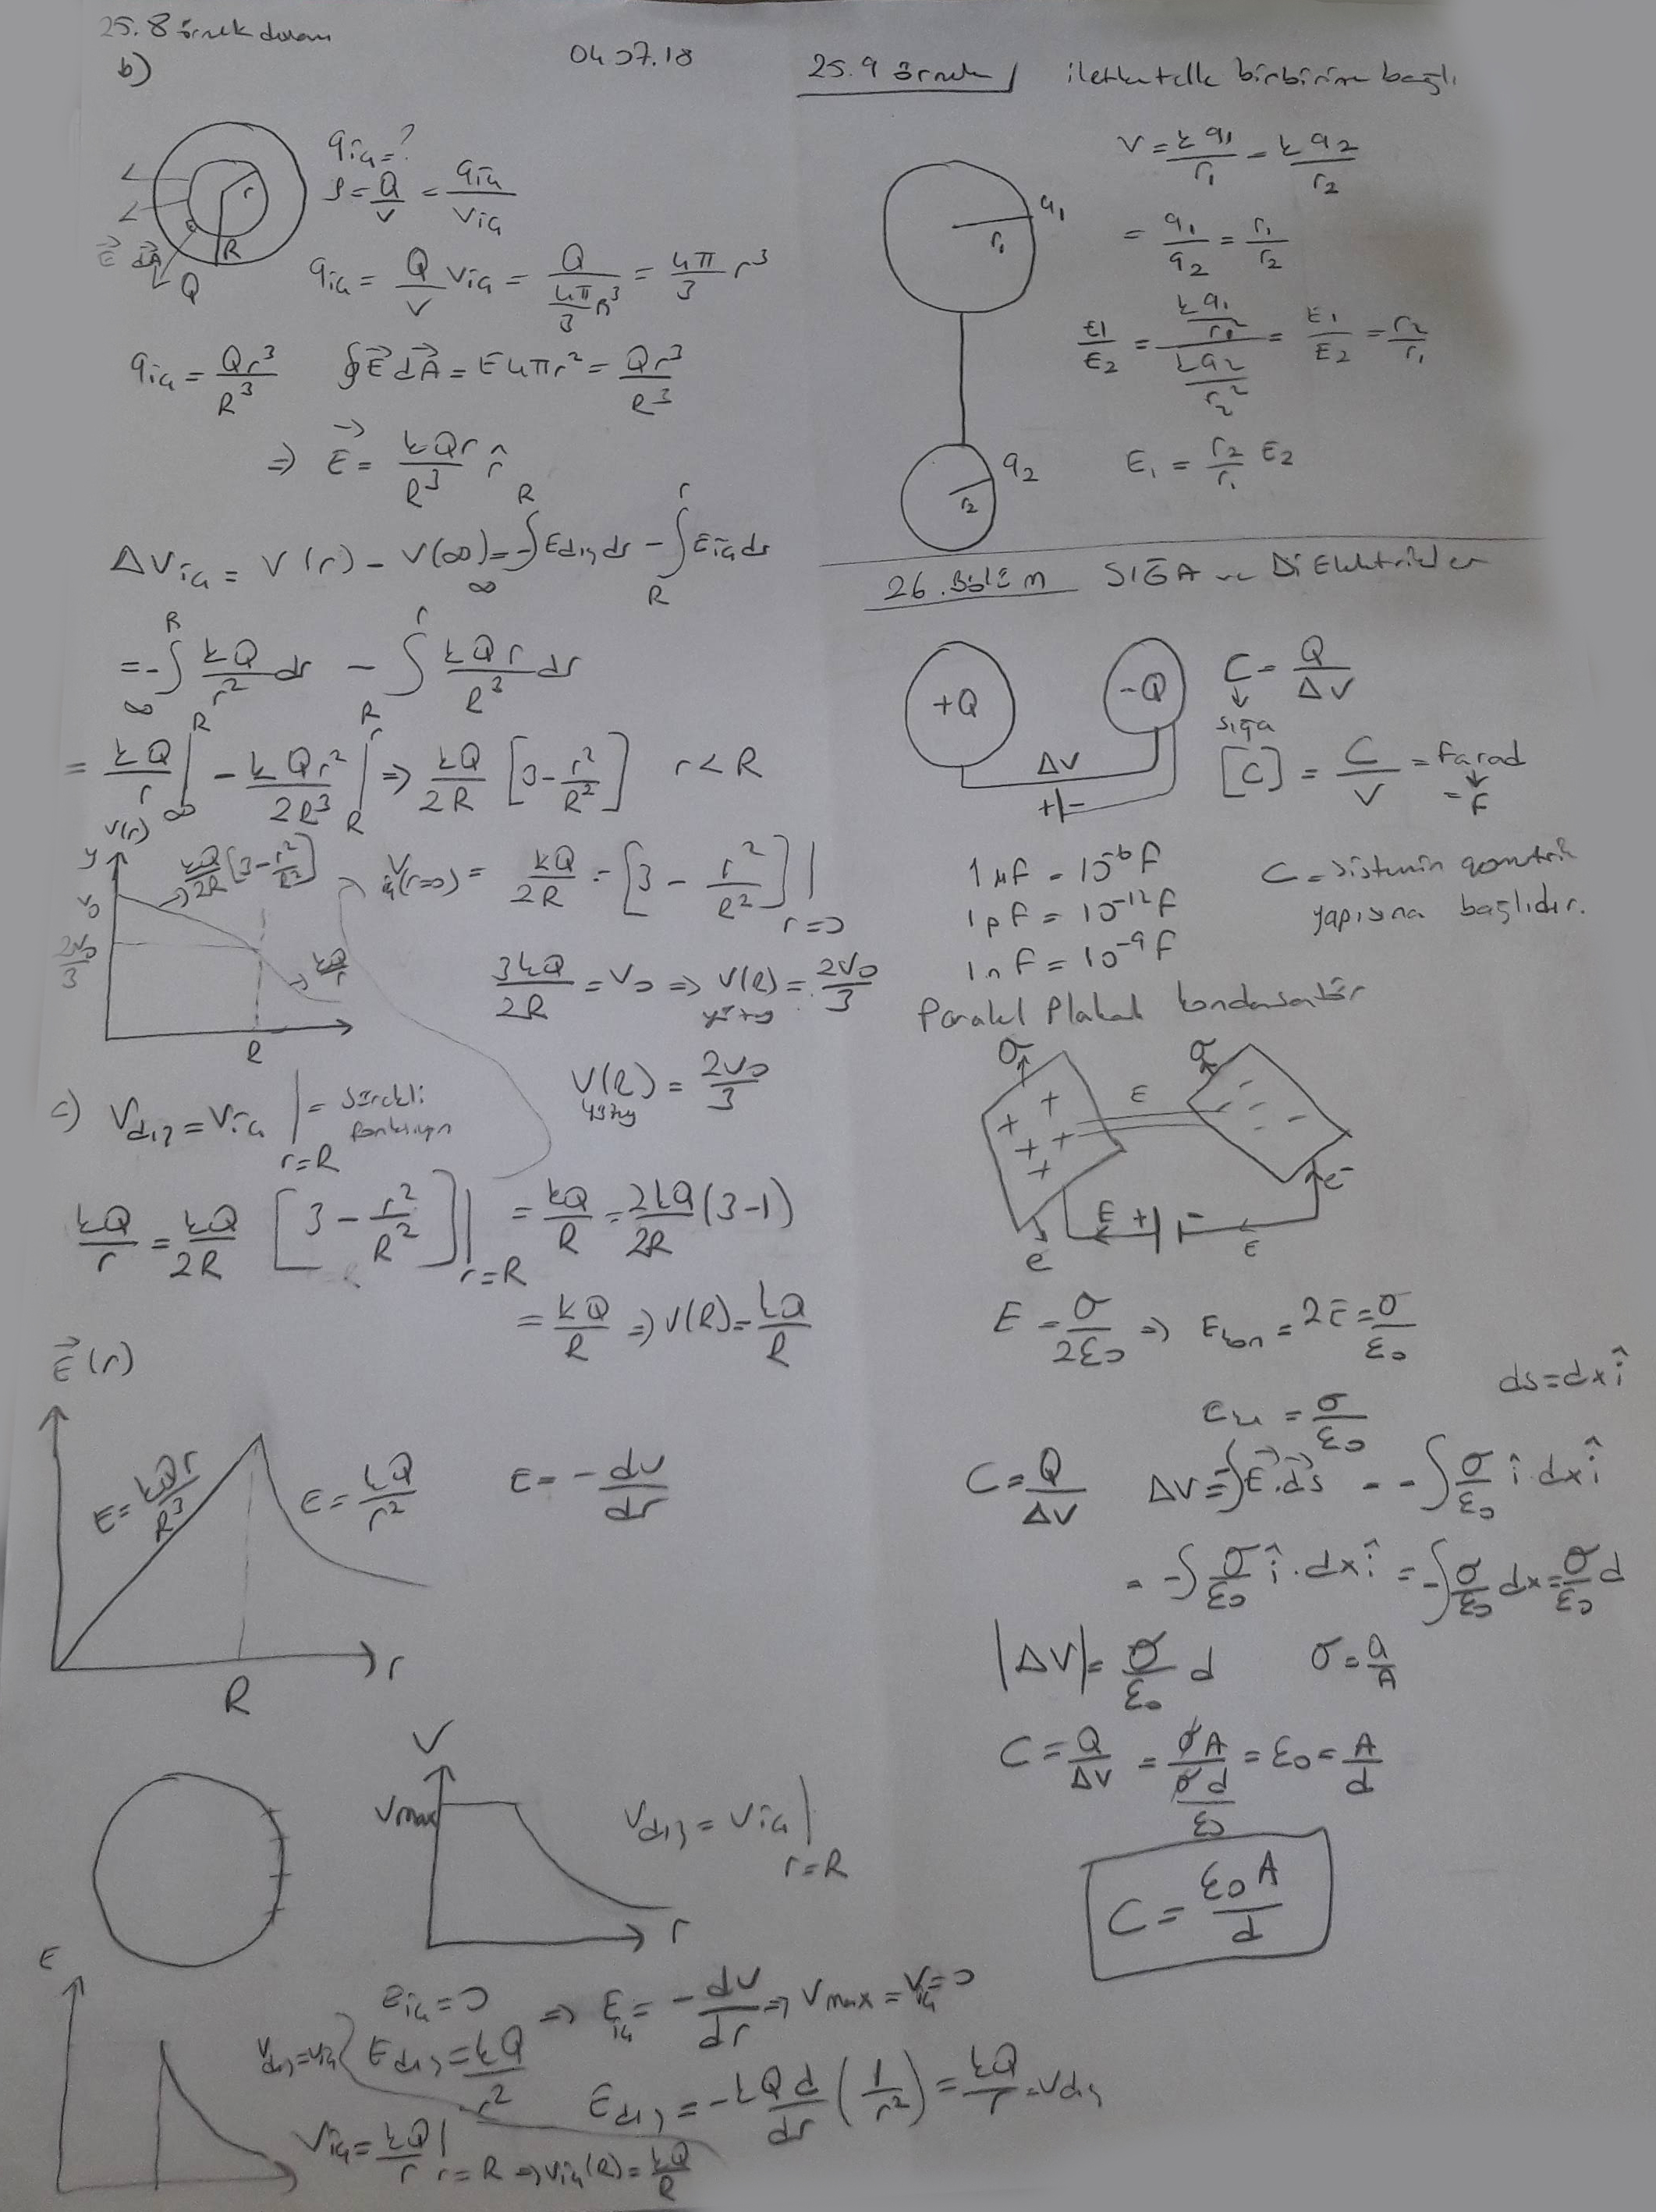 25.8 örnek devam
04.07.18
b)
qiç=?
ρ = Q/V = qiç/Viç
r
R
Q
E dA
qiç = Q/V Viç = Q/(4π/3 R³) = 4π/3 r³
qiç = Qr³/R³ ∮E⃗ dA⃗ = E4πr² = Qr³/R³
⇒ E⃗ = kQr/R³ r̂
ΔViç = V(r) - V(∞) = -∫_∞^R Edış ds - ∫_R^r Eiç ds
= -∫_∞^R kQ/r² ds - ∫_R^r kQr/R³ ds
= kQ/r |_∞^R - kQr²/2R³ |_R^r ⇒ kQ/2R [3 - r²/R²] r<R
V(r)
y
V0
2V0/3
kQ/2R [3 - r²/R²]
kQ/r
R
Viç(r=0) = kQ/2R = [3 - r²/R²] |r=0
3kQ/2R = V0 ⇒ V(R) = 2V0/3
yüzey
V(R) = 2V0/3
yüzey
c) Vdış = Viç |r=R = Sürekli fonksiyon
kQ/r = kQ/2R [3 - r²/R²] |r=R = kQ/R = 2kQ/2R (3-1)
= kQ/R ⇒ V(R) = kQ/R
E⃗(r)
E = kQr/R³
E = kQ/r²
E = - dV/dr
r
R
V
Vmax
r
Vdış = Viç |r=R
E
Eiç = 0 ⇒ Eiç = - dV/dr ⇒ Vmax = Viç = 0
Vdış = Viç
Edış = kQ/r²
Edış = -kQ d/dr (1/r²) = kQ/r = Vdış
Viç = kQ/r |r=R ⇒ Viç(R) = kQ/R
25.9 örnek / iletken telle birbirine bağlı
V = kq1/r1 = kq2/r2
= q1/q2 = r1/r2
q1
r1
E1/E2 = (kq1/r1²)/(kq2/r2²) = E1/E2 = r2/r1
q2
r2
E1 = r2/r1 E2
26. Bölüm SIĞA ve Dielektrikler
+Q
-Q
ΔV
+ -
C = Q/ΔV
↓
sığa
[C] = C/V = Farad
= F
1 μF = 10⁻⁶ F
1 pF = 10⁻¹² F
1 nF = 10⁻⁹ F
C = Sistemin geometrik
yapısına bağlıdır.
Paralel Plakalı kondansatör
σ
σ
+ + + + +
- - - -
E
e⁻
e
E + - E
E = σ/2ε0 ⇒ Ekon = 2E = σ/ε0
ds = dx î
= σ/ε0
C = Q/ΔV ΔV = ∫E⃗.ds⃗ = -∫ σ/ε0 î . dx î
= -∫ σ/ε0 î . dx î = -∫ σ/ε0 dx = σ/ε0 d
|ΔV| = σ/ε0 d σ = Q/A
C = Q/ΔV = σA/(σd/ε0) = ε0 = A/d
C = ε0A/d